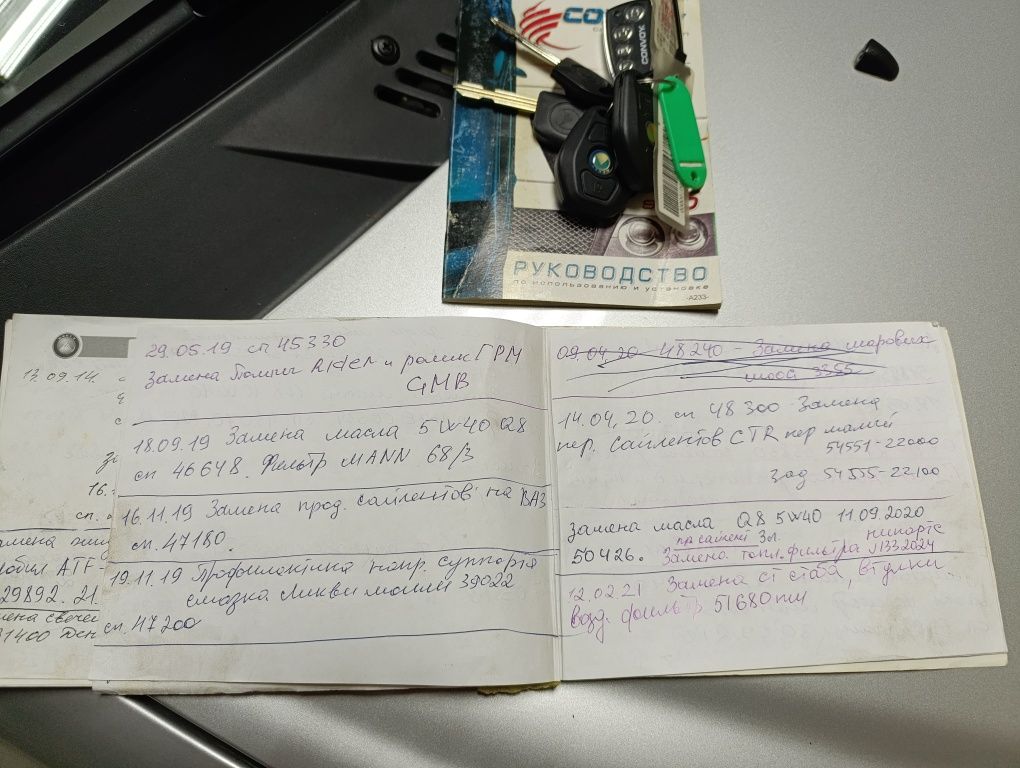 CONVOX
РУКОВОДСТВО
по использованию и установке
-A233-
29.05.19 сп 45330
Замена Помпы RIDER и ролик ГРМ
GMB
18.09.19 Замена масла 5W40 Q8
сп 46648. Фильтр MANN 68/3
16.11.19 Замена прод. сайлентов на ВАЗ
сп. 47180.
19.11.19 Профилактика напр. суппорта
смазка Ликви молий 39022
сп. 47200
13.09.14.
16.
сп.
ATF-
29892. 21.
31400
09.04.20 48240 - Замена шаровых
3355
14.04,20. сп 48300 Замена
пер. сайлентов CTR пер малый
54551-22000
зад 54555-22100
Замена масла Q8 5W40 11.09.2020
50426. Замена топл. фильтра нипартс J1332024
12.02.21 Замена ст стаба, втулки
возд. фильтр 51680 km